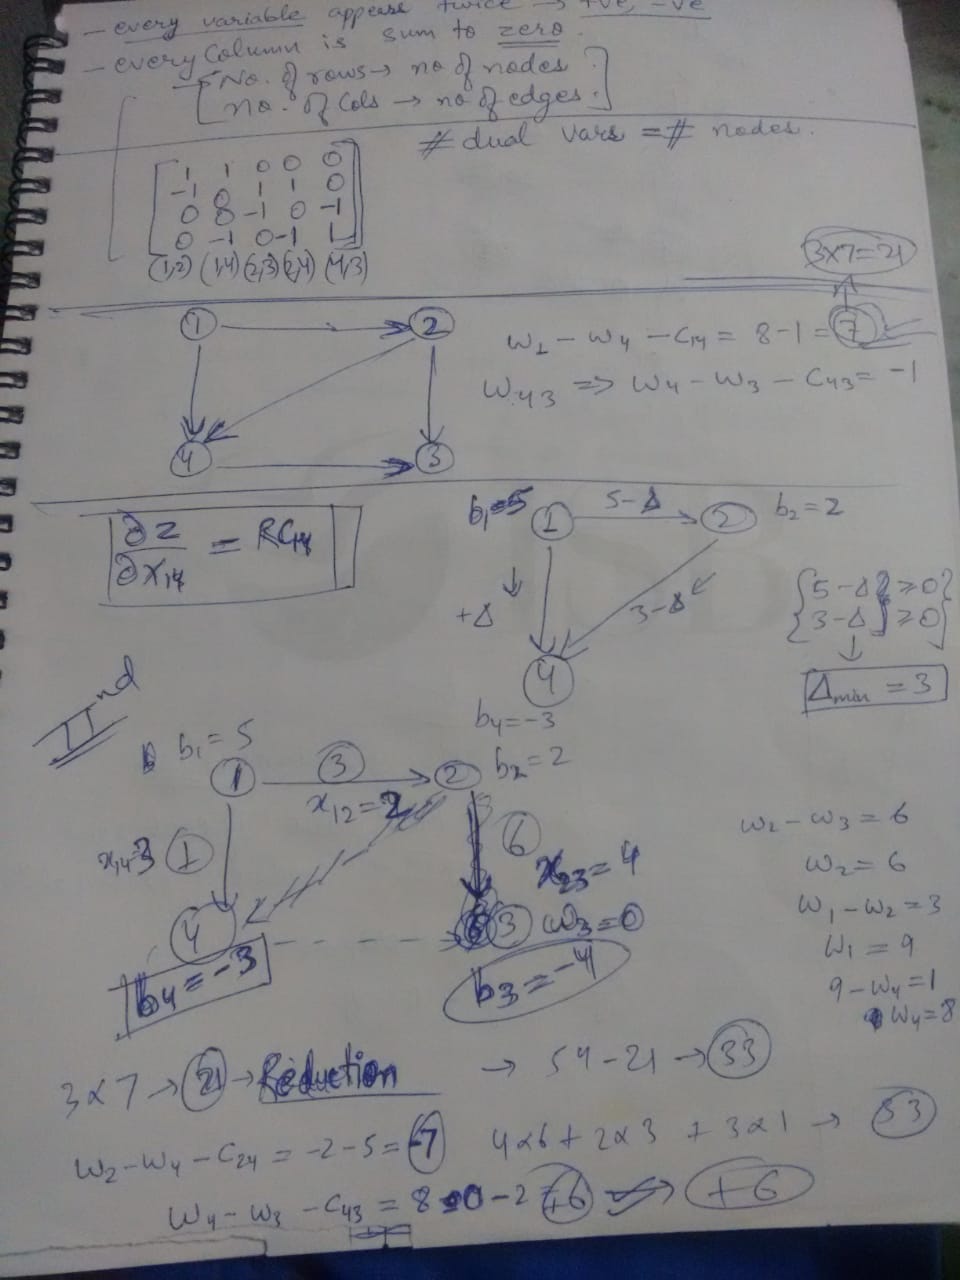 - every variable appears twice → +ve, -ve
- every Column is sum to zero.
→ No. of rows → no of nodes
no. of Cols → no of edges.
# dual vars = # nodes.
1 1 0 0 0
-1 0 1 1 0
0 0 -1 0 -1
0 -1 0 -1 1
(1,2) (1,4) (2,3) (2,4) (4,3)
3x7=21
1 2
w1 - w4 - C14 = 8-1 = 7
w43 => w4 - w3 - C43 = -1
4 3
∂z/∂x14 = RC14
b1=5 1 5-Δ 2 b2=2
+Δ 3-Δ
5-Δ ≥0
3-Δ ≥0
Δmin = 3
4
b4=-3
IInd
b1=5
1 3 2 b2=2
x12=2
x14=3 1 6
x23=4
4 3 w3=0
b4=-3 b3=-4
w2-w3=6
w2=6
w1-w2=3
w1=9
9-w4=1
w4=8
3x7 → 21 → Reduction → 54-21 → 33
w2-w4-C24 = -2-5 = -7 4x6+2x3+3x1 → 33
w4-w3-C43 = 8-0-2 = +6 → +6